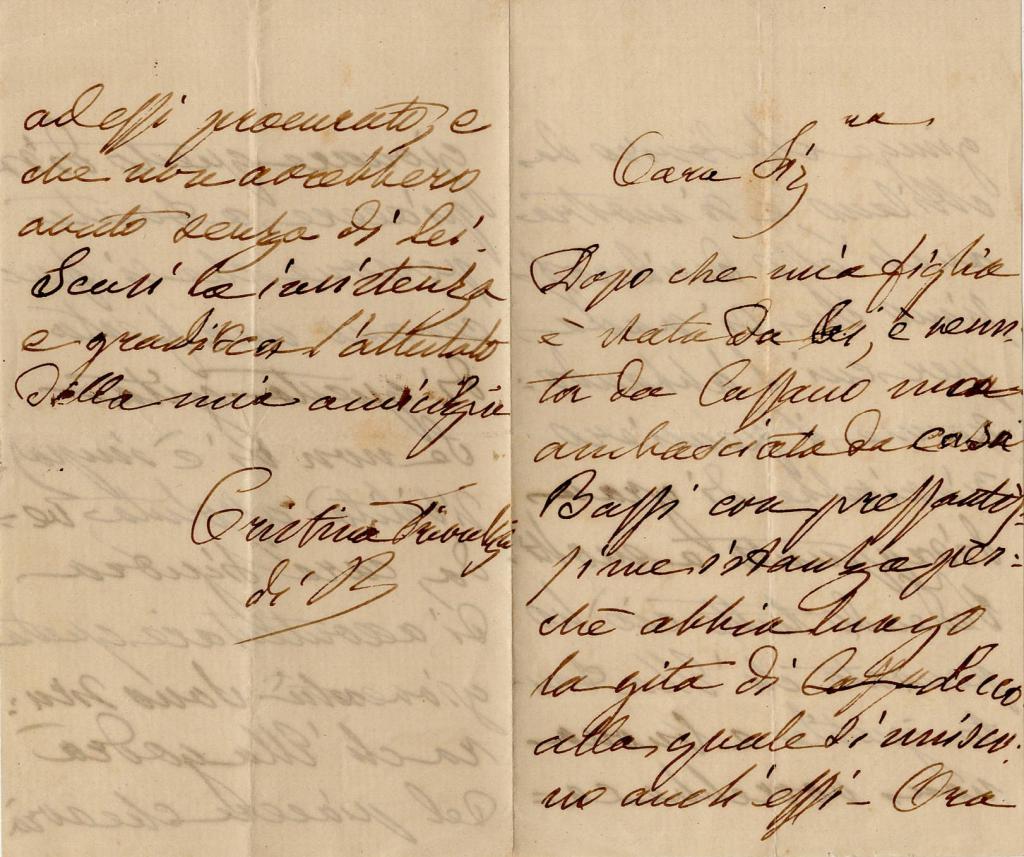 Cara Sig.ra
Dopo che mia figlia
è stata da lei, è venu-
ta da Cassano una
ambasciata da casa
Bassi con pressantis-
sime istanza per=
chè abbia luogo
la gita di Lecco
alla quale si unisco-
no anch'essi - Ora
ad essi procurato, e
che non avrebbero
avuto senza di lei.
Scusi la insistenza
e gradisca l'attestato
della mia amicizia
Cristina Trivulzio
di B